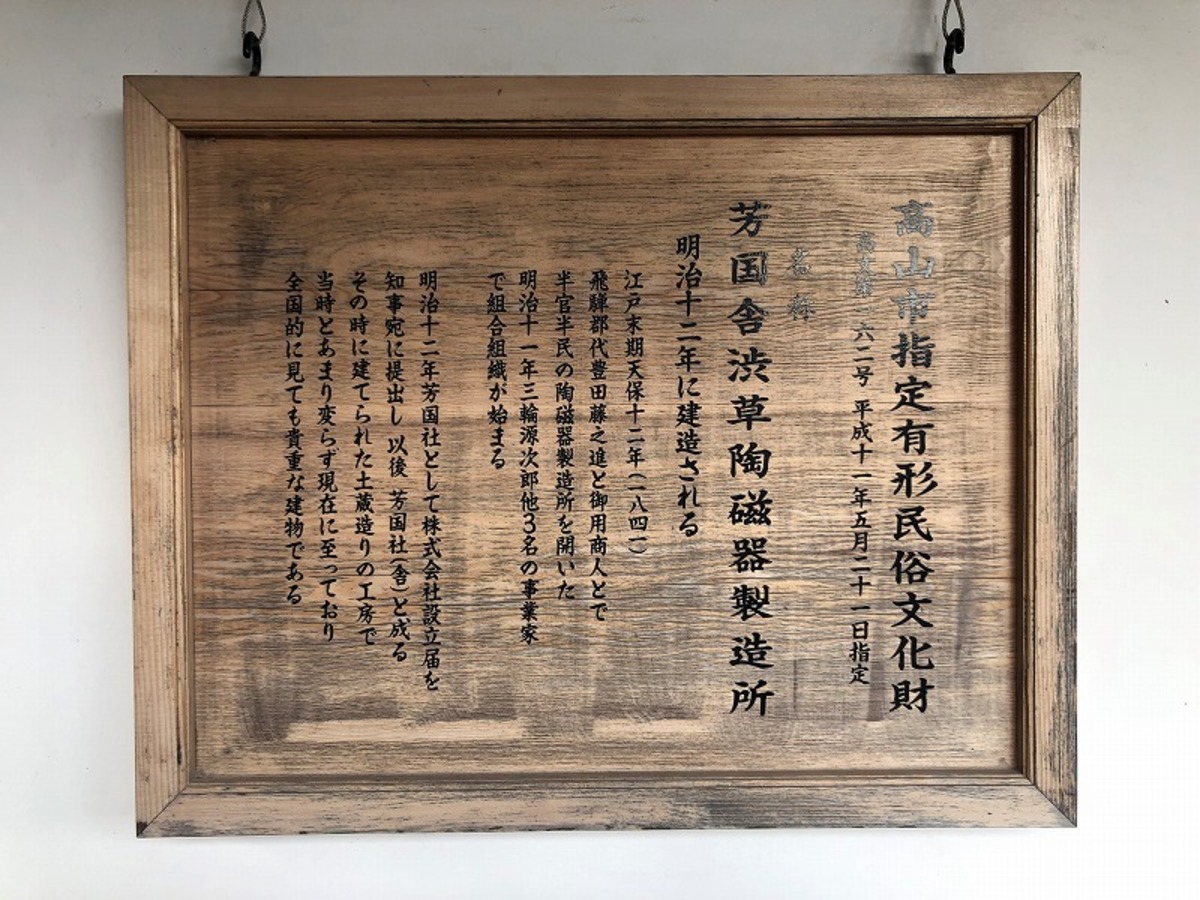 高山市指定有形民俗文化財
六二号 平成十一年五月二十一日指定
芳国舎渋草陶磁器製造所
明治十二年に建造される
江戸末期天保十二年(一八四一)
飛騨郡代豊田藤之進と御用商人とで
半官半民の陶磁器製造所を開いた
明治十一年三輪源次郎他3名の事業家
で組合組織が始まる
明治十二年芳国社として株式会社設立届を
知事宛に提出し 以後 芳国社(舎)と成る
その時に建てられた土蔵造りの工房で
当時とあまり変らず現在に至っており
全国的に見ても貴重な建物である